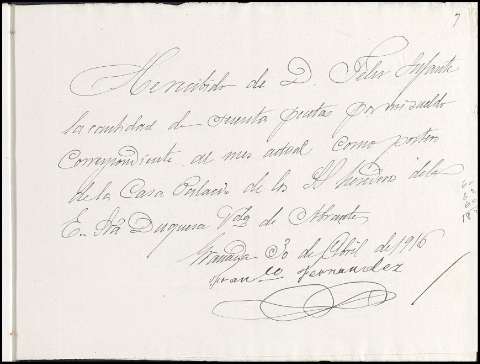 7
He recibido de D. Felix Infante
la cantidad de sesenta pesetas por mi sueldo
correspondiente al mes actual como portero
de la Casa Palacio de los SS herederos de la
E. Sra Duquesa Vda de Abrantes
Granada 30 de Abril de 1916
Franco Fernandez